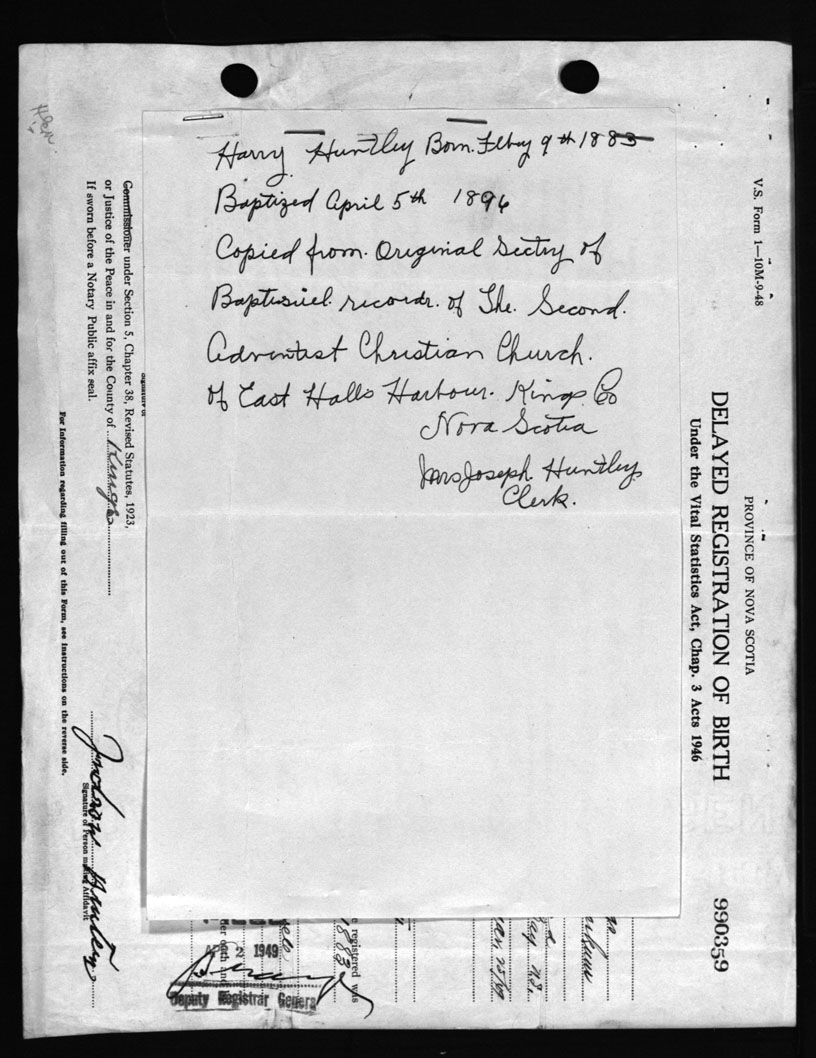 Harry Huntley Born. Feby 9th 1883
Baptized April 5th 1896
Copied from. Original Sectry of
Baptisuiel. records. of The. Second.
Adventist Christian Church.
of East Halls Harbour. Kings. Co
Nova Scotia
Mrs Joseph. Huntley.
Clerk.
V.S. Form 1—10M-9-48
PROVINCE OF NOVA SCOTIA
DELAYED REGISTRATION OF BIRTH
Under the Vital Statistics Act, Chap. 3 Acts 1946
990359
Commissioner under Section 5, Chapter 38, Revised Statutes, 1923,
or Justice of the Peace in and for the County of Kings
If sworn before a Notary Public affix seal.
For Information regarding filling out of this Form, see Instructions on the reverse side.
Signature of Person making Affidavit
Signature of
e registered was
1883
2 1949
Deputy Registrar General